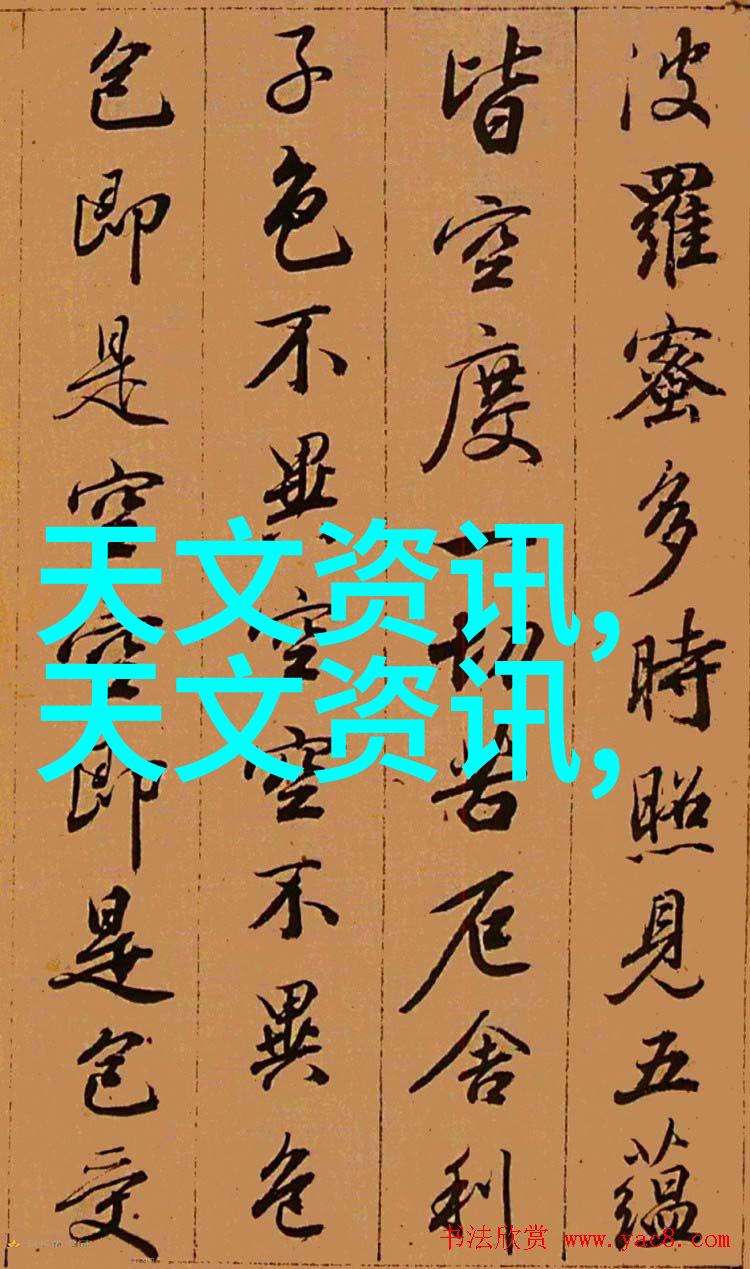 波羅蜜多時照見五蘊
皆空度一切苦厄舍利
子色不異空空不異色
色即是空空即是色受
天文资讯,
天文资讯,
书法欣赏 www.yac8.com